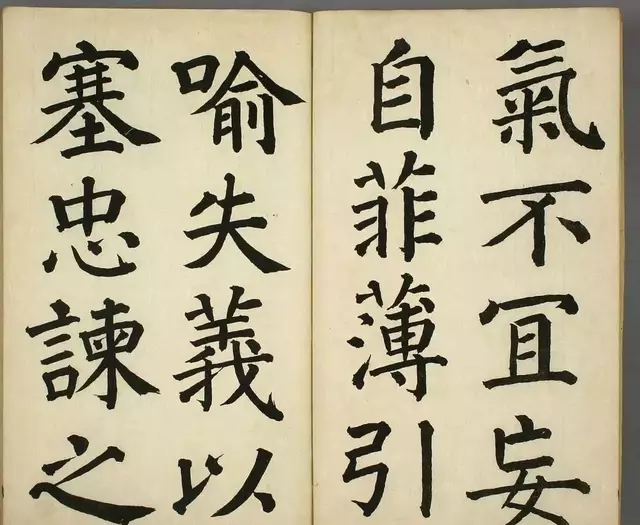 氣不冝妄
自菲薄引
喻失義以
塞忠諫之